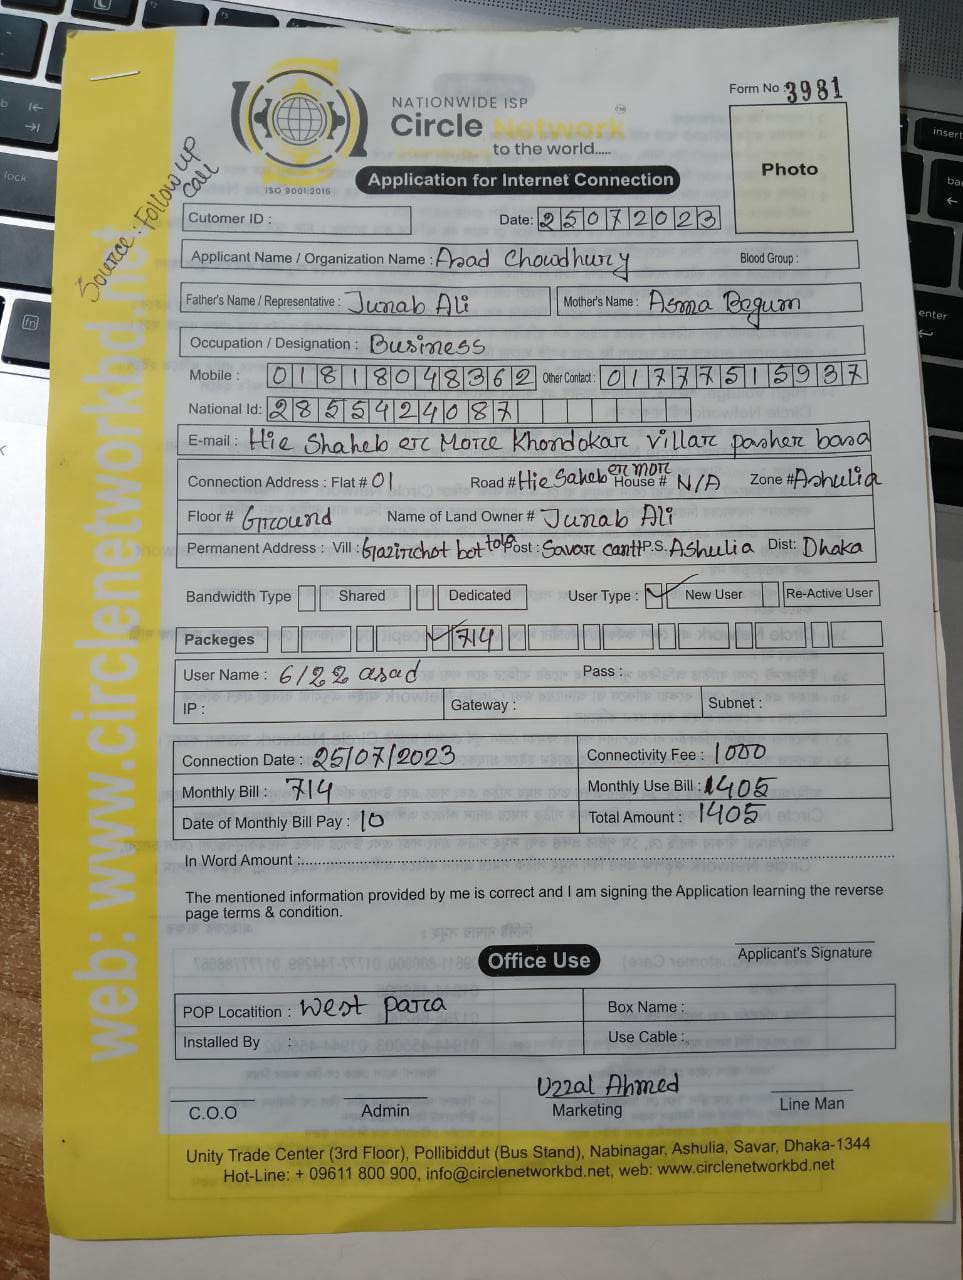 Form No : 3981
NATIONWIDE ISP
Circle Network™
to the world.....
ISO 9001:2015
Application for Internet Connection
Photo
Source: Follow up call
Cutomer ID :
Date: 25072023
Applicant Name / Organization Name : Asad Chowdhury Blood Group :
Father's Name / Representative : Junab Ali Mother's Name : Asma Begum
Occupation / Designation : Business
Mobile : 01818048362 Other Contact : 01777515937
National Id: 2855424087
E-mail : Hie Shaheb er More Khondokar villar pasher basa
Connection Address : Flat # 01 Road # Hie Saheb er more House # N/A Zone # Ashulia
Floor # Ground Name of Land Owner # Junab Ali
Permanent Address : Vill : Gazirchot bot tola Post : Savar cantt P.S. Ashulia Dist: Dhaka
Bandwidth Type Shared Dedicated User Type : ✓ New User Re-Active User
Packeges ✓ 714
User Name : 6/22 asad Pass :
IP : Gateway : Subnet :
Connection Date : 25/07/2023 Connectivity Fee : 1000
Monthly Bill : 714 Monthly Use Bill : 1405
Date of Monthly Bill Pay : 10 Total Amount : 1405
In Word Amount :
The mentioned information provided by me is correct and I am signing the Application learning the reverse
page terms & condition.
Applicant's Signature
Office Use
POP Locatition : West para Box Name :
Installed By : Use Cable :
Uzzal Ahmed
C.O.O Admin Marketing Line Man
Unity Trade Center (3rd Floor), Pollibiddut (Bus Stand), Nabinagar, Ashulia, Savar, Dhaka-1344
Hot-Line: + 09611 800 900, info@circlenetworkbd.net, web: www.circlenetworkbd.net
web: www.circlenetworkbd.net
insert
lock
fn
enter